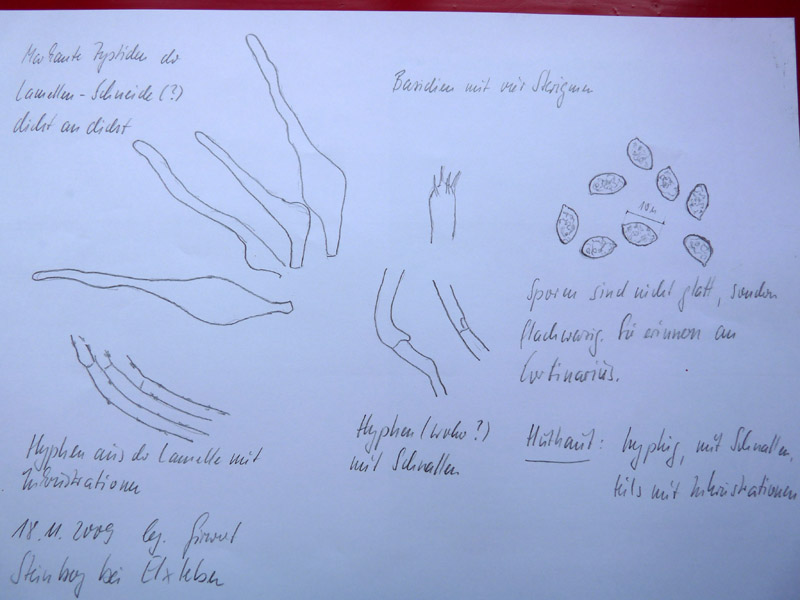 Markante Zystiden der
Lamellen-Schneide(?)
dicht an dicht
Basidien mit vier Sterigmen
10 µ
Sporen sind nicht glatt, sondern
flachwarzig. Sie erinnern an
Cortinarius.
Hyphen aus der Lamelle mit
Inkrustrationen
Hyphen (woher?)
mit Schnallen
Huthaut: hyphig, mit Schnallen,
teils mit Inkrustationen
18.11.2009 leg. Girwert
Steinberg bei Elxleben